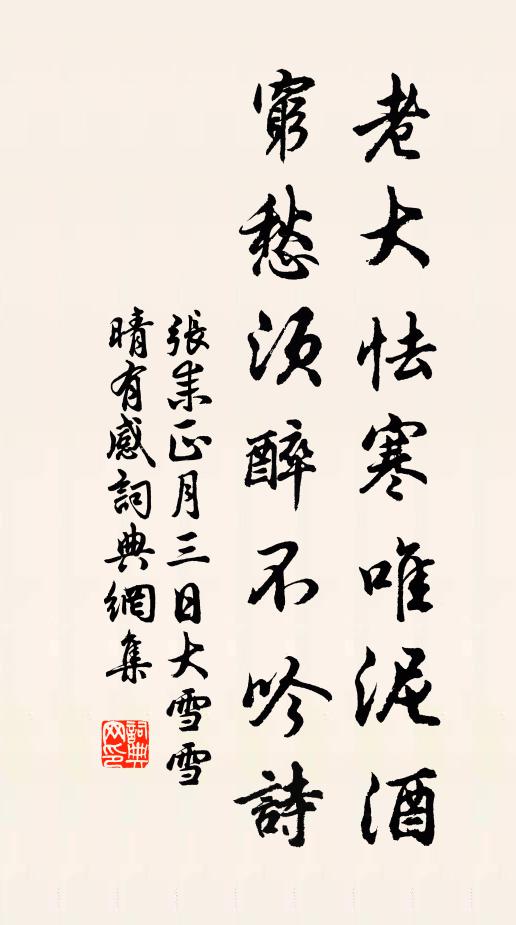 老大怯寒唯泥酒
窮愁須醉不吟詩
張耒正月三日大雪雪
晴有感詞典網集
詞典網印